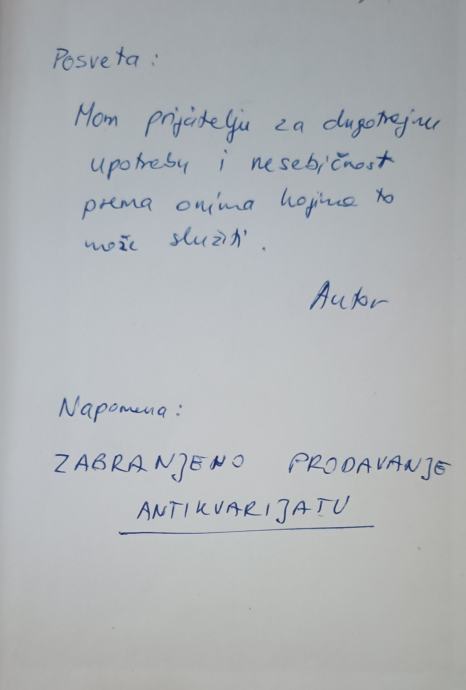 Posveta:
Mom prijatelju za dugotrajnu
upotrebu i nesebičnost
prema onima kojima to
može služiti.
Autor
Napomena:
ZABRANJENO PRODAVANJE
ANTIKVARIJATU